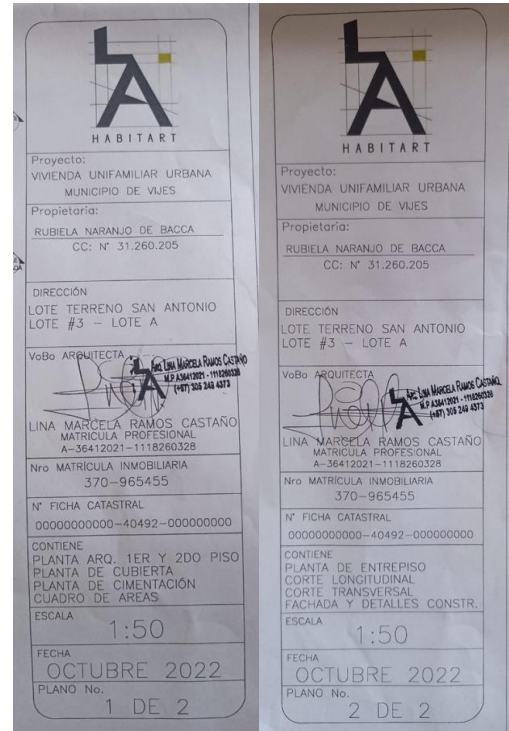 HABITART
Proyecto:
VIVIENDA UNIFAMILIAR URBANA
MUNICIPIO DE VIJES
Propietaria:
RUBIELA NARANJO DE BACCA
CC: N° 31.260.205
DIRECCIÓN
LOTE TERRENO SAN ANTONIO
LOTE #3 - LOTE A
VoBo ARQUITECTA
Arq. LINA MARCELA RAMOS CASTAÑO
M.P A36412021 - 1118260328
(+57) 305 249 4373
LINA MARCELA RAMOS CASTAÑO
MATRICULA PROFESIONAL
A-36412021-1118260328
Nro MATRÍCULA INMOBILIARIA
370-965455
N° FICHA CATASTRAL
00000000000-40492-000000000
CONTIENE
PLANTA ARQ. 1ER Y 2DO PISO
PLANTA DE CUBIERTA
PLANTA DE CIMENTACIÓN
CUADRO DE AREAS
ESCALA
1:50
FECHA
OCTUBRE 2022
PLANO No.
1 DE 2
HABITART
Proyecto:
VIVIENDA UNIFAMILIAR URBANA
MUNICIPIO DE VIJES
Propietaria:
RUBIELA NARANJO DE BACCA
CC: N° 31.260.205
DIRECCIÓN
LOTE TERRENO SAN ANTONIO
LOTE #3 - LOTE A
VoBo ARQUITECTA
Arq. LINA MARCELA RAMOS CASTAÑO
M.P A36412021 - 1118260328
(+57) 305 249 4373
LINA MARCELA RAMOS CASTAÑO
MATRICULA PROFESIONAL
A-36412021-1118260328
Nro MATRÍCULA INMOBILIARIA
370-965455
N° FICHA CATASTRAL
00000000000-40492-000000000
CONTIENE
PLANTA DE ENTREPISO
CORTE LONGITUDINAL
CORTE TRANSVERSAL
FACHADA Y DETALLES CONSTR.
ESCALA
1:50
FECHA
OCTUBRE 2022
PLANO No.
2 DE 2